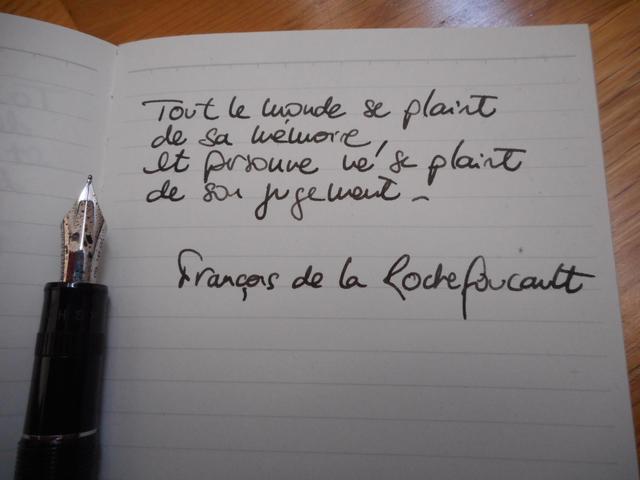 Tout le monde se plaint
de sa mémoire,
et personne ne se plaint
de son jugement –
François de la Rochefoucault